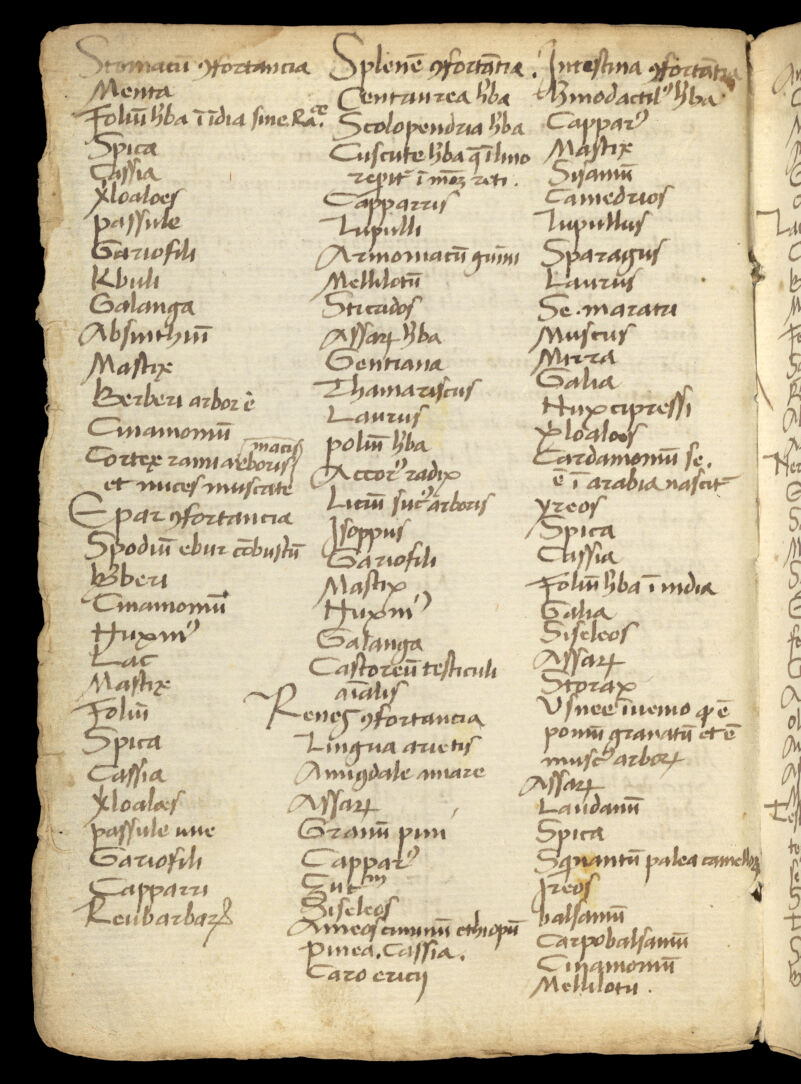 Stomacū ꝯfortancia
Menta
Foliū hʼba ī īdia sine Ra.ce
Spica
Cassia
Xiloaloes
passule
Gariofili
Kbuli
Galanga
Absinthiū
Mastix
Berberi arbor ē
Cinamomū
Cortex rami arboris macis
et nuces muscate
Epar ꝯfortancia
Spodiū ebur cōbustū
bʼberi
Cinamomū
Nux mꝰ
Lac
Mastix
Foliū
Spica
Cassia
Xiloaloes
passule uue
Gariofili
Capparri
Reubarbarꝫ
Splenē ꝯfortātia.
Centaurea hʼba
Scolopendria hʼba
Cuscute hʼba q̄ ī lino
repit ī
Capparris
Lupulli
Armoniacū gūmi
Mellilotū
Sticados
Assarꝝ hʼba
Gentiana
Thamariscus
Laurus
poliū hʼba
Accorꝰ radix
Liciū sucꝰ arboris
Isoppus
Gariofili
Mastix
Nux mꝰ
Galanga
Castoreū testiculi
aīalis
Renes ꝯfortancia
Lingua arietis
Amigdale amare
Assarꝝ
Granū pini
Capparꝰ
Siseleos
Ameos ciminū ethiopū
Pinea. Cassia.
Caro ericij
Intestina ꝯfortātia
hʼmodactilꝰ hʼba
Capparꝰ
Mastix
Sisamū
Camedrios
Lupullus
Sparagus
Laurus
Se. maratri
Muscus
Mirra
Galia
Nux cipressi
Xiloaloes
Cardamomū se.
ē ī arabia nascit᷑
yreos
Spica
Cassia
Foliū hʼba ī india
Galia
Siseleos
Assarꝝ
Storax
Usnee īuenio ꝙ ē
pomū granatū et ē
muscꝰ arborꝝ
Assarꝝ
Laudanū
Spica
Squinantū palea camellorꝝ
Ireos
balsamū
Carpobalsamū
Cinamomū
Mellilotū.